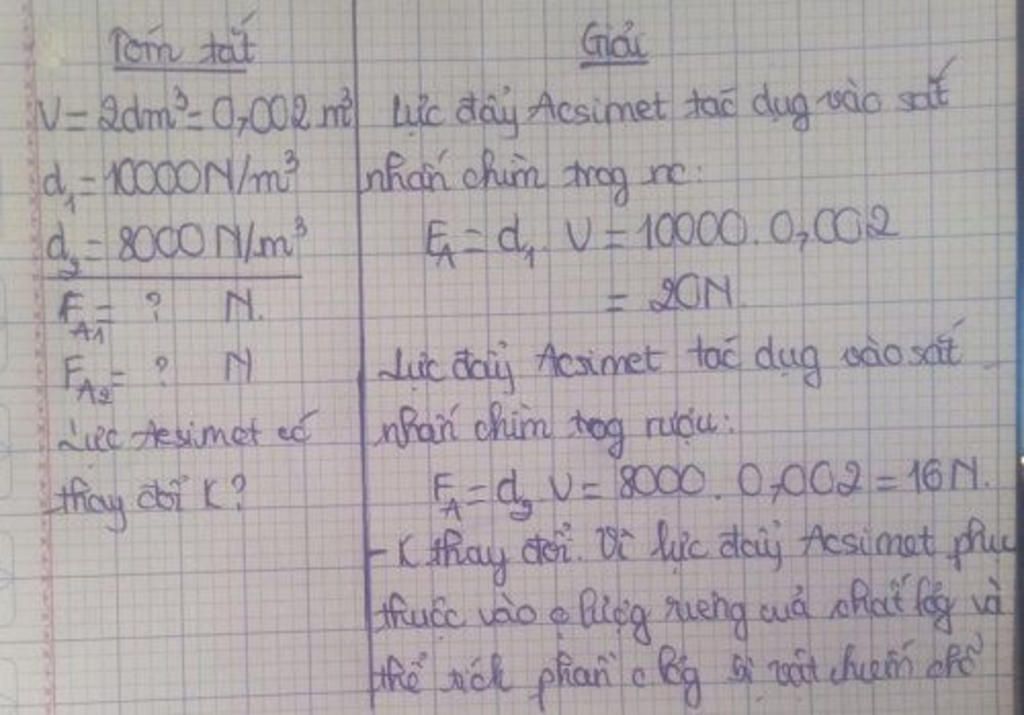 Tóm tắt
V = 2dm³ = 0,002 m³
d₁ = 10000N/m³
d₂ = 8000 N/m³
F_A1 = ? N.
F_A2 = ? N
Lực Acsimet có
thay đổi K?
Giải
Lực đẩy Acsimet tác dụg vào sắt
nhấn chìm trog nc:
F_A = d₁. V = 10000. 0,002
= 20N.
Lực đẩy Acsimet tác dụg vào sắt
nhấn chìm trog rượu:
F_A = d₂ V = 8000. 0,002 = 16N.
- K thay đổi. Vì lực đẩy Acsimet phụ
thuộc vào lượg riêng cuả chất lỏg và
thể tích phần c lỏg bị vật chiếm chỗ